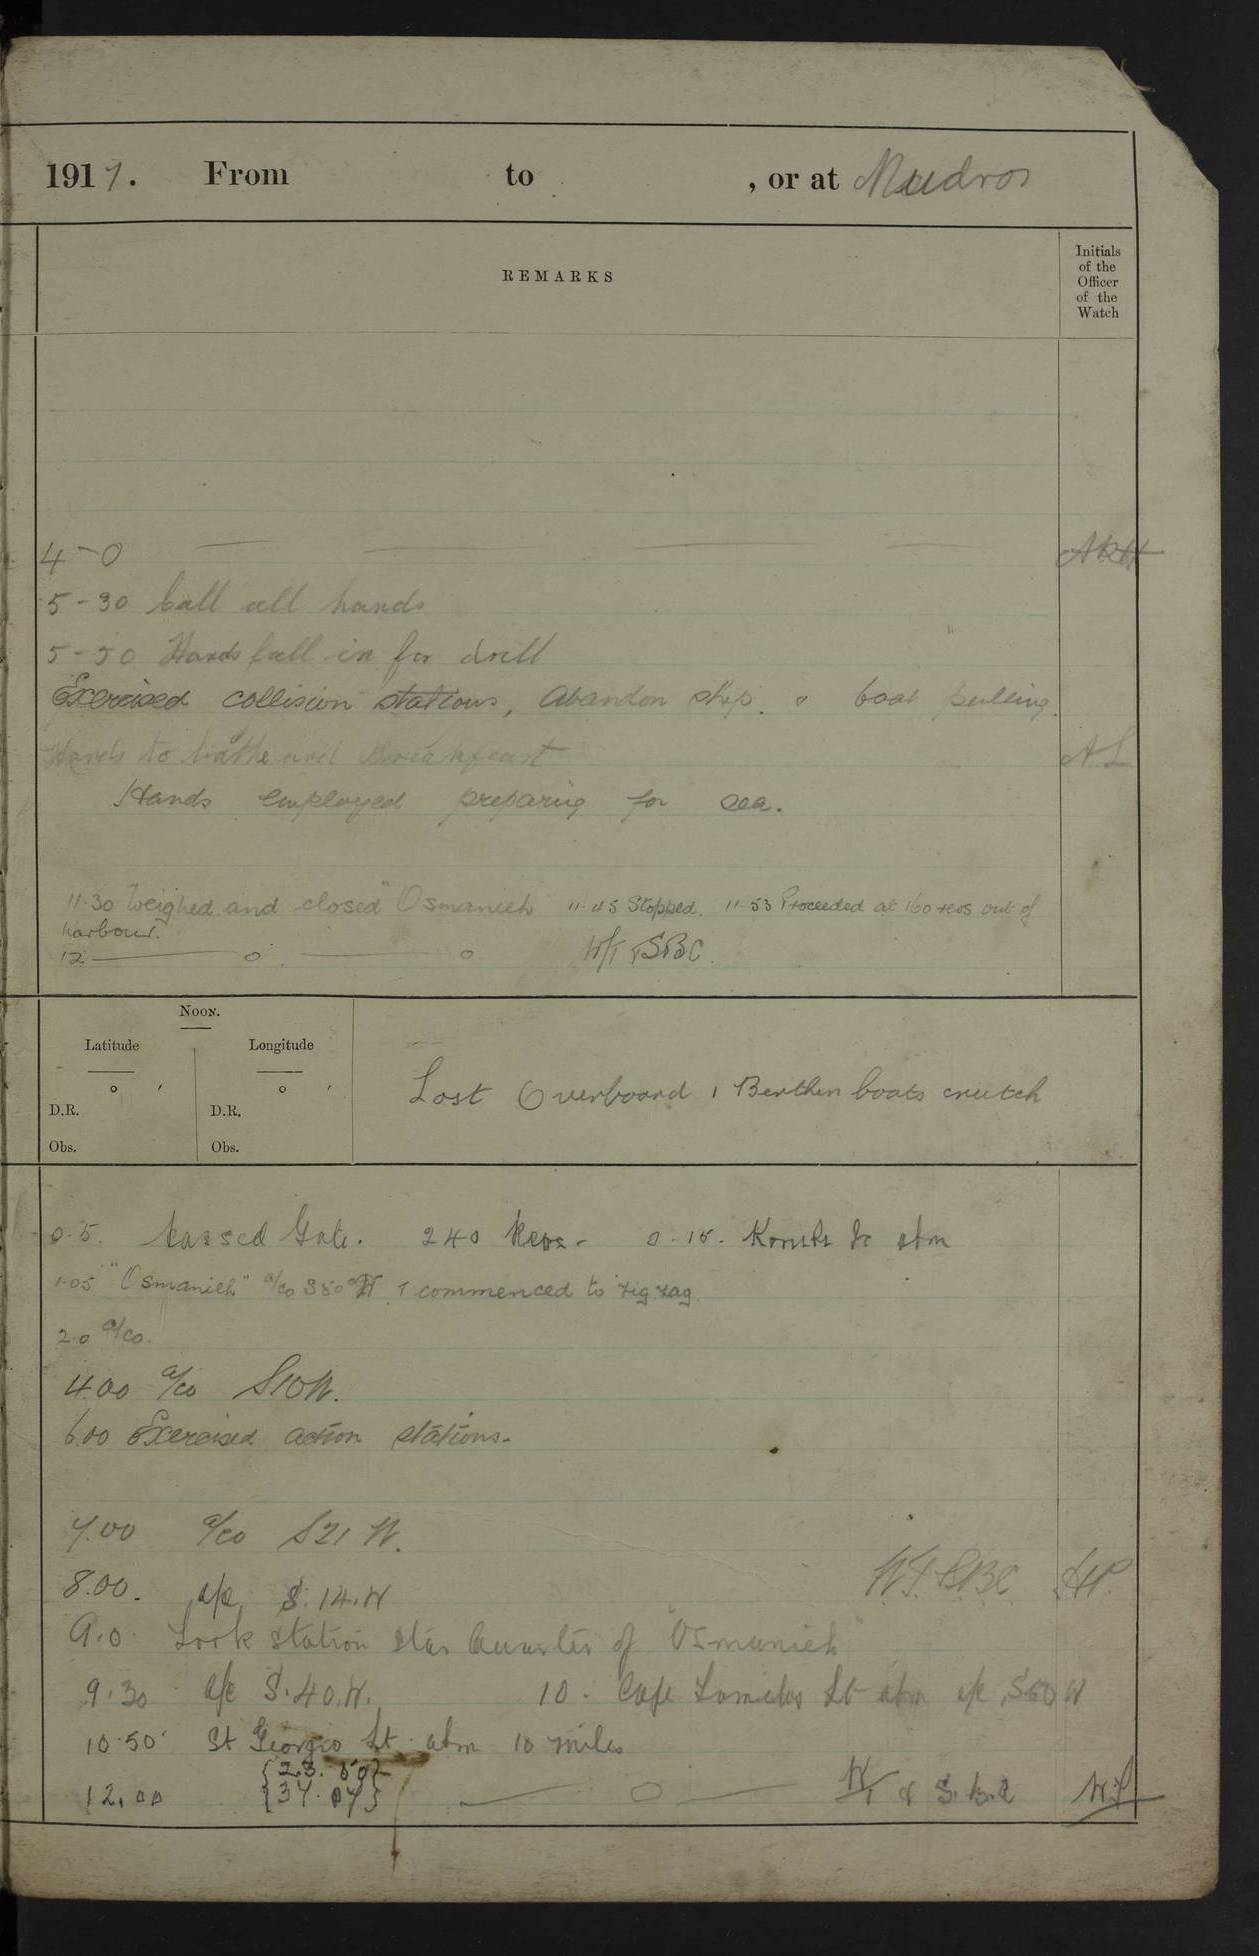 1917. From to , or at Mudros
REMARKS
Initials of the Officer of the Watch
4-0 ARH
5-30 Call all hands
5-50 Hands fall in for drill
Exercised collision stations, Abandon ship. & boat pulling.
Hands to bathe and Breakfast AL
Hands employed preparing for sea.
11.30 Weighed and closed "Osmanieh 11.45 Stopped. 11.53 Proceeded at 160 revs out of
harbour.
12 o o W/T & SBC.
Noon.
Latitude Longitude
° ′ ° ′
D.R. D.R.
Obs. Obs.
Lost Overboard 1 Berthen boats crutch
0.5. Passed Gate. 240 Revs. 0.15. abm
1.05 "Osmanieh" a/co S50°W & commenced to zig zag.
2.0 a/co.
4.00 a/co S10W.
6.00 Exercised action stations.
7.00 a/co S21W.
8.00. a/c S.14.W W.T. & S.B.C. HP.
9.0. Took station star Quarter of "Osmanieh"
9.30 a/c S.40.W. 10. Cape Lt abm a/c S60W
10.50 St Giorgio Lt. abm 10 miles
12.00 {23.50} {37.07} o W/T & S.B.C W.P